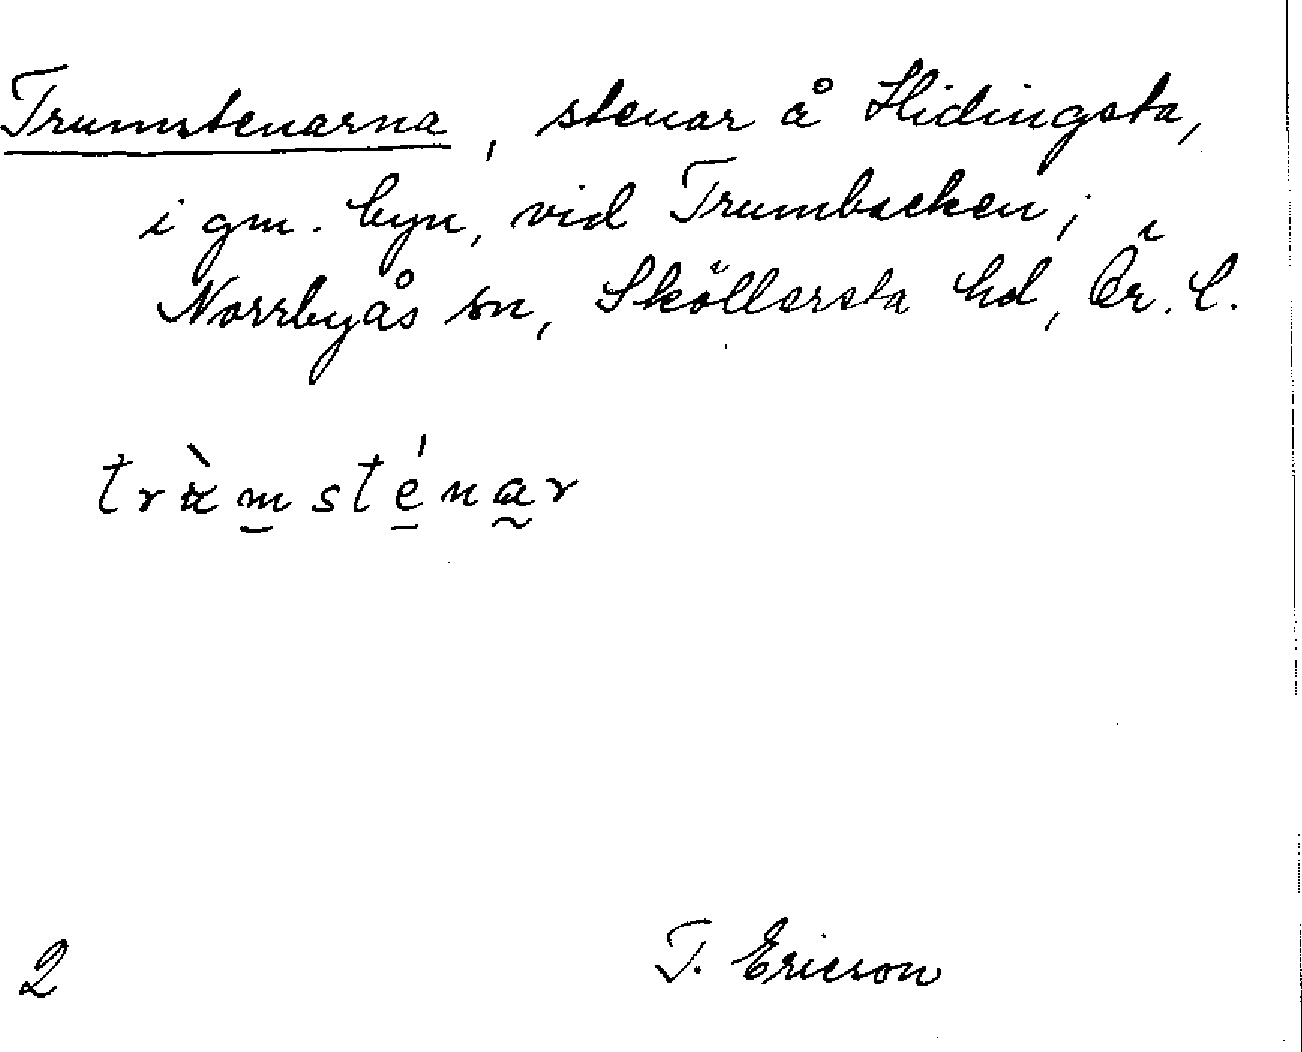 Trumstenarna, stenar å Hidingsta,
i gm. byn, vid Trumbacken;
Norrbyås sn, Sköllersta hd, Ör. l.
tru̇̀m̠sté̠na̰r
2
T. Ericson